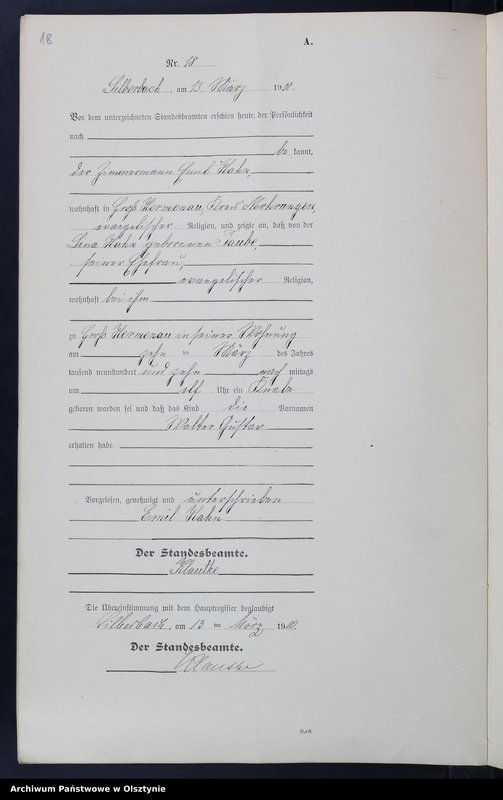 18
A.
Nr. 18
Silberbach, am 13. März 1910.
Vor dem unterzeichneten Standesbeamten erschien heute, der Persönlichkeit
nach
be kannt,
der Zimmermann Emil Hahn,
wohnhaft in Groß Hermenau, Kreis Mohrungen,
evangelischer Religion, und zeigte an, daß von der
Lina Hahn geborenen Taube,
seiner Ehefrau,
evangelischer Religion,
wohnhaft bei ihm
zu Groß Hermenau in seiner Wohnung
am zehn ten März des Jahres
tausend neunhundert und zehn nach mittags
um elf Uhr ein Knabe
geboren worden sei und daß das Kind die Vornamen
Walter Gustav
erhalten habe.
Vorgelesen, genehmigt und unterschrieben
Emil Hahn
Der Standesbeamte.
Die Übereinstimmung mit dem Hauptregister beglaubigt
Silberbach, am 13 ten März 1910.
Der Standesbeamte.
Archiwum Państwowe w Olsztynie